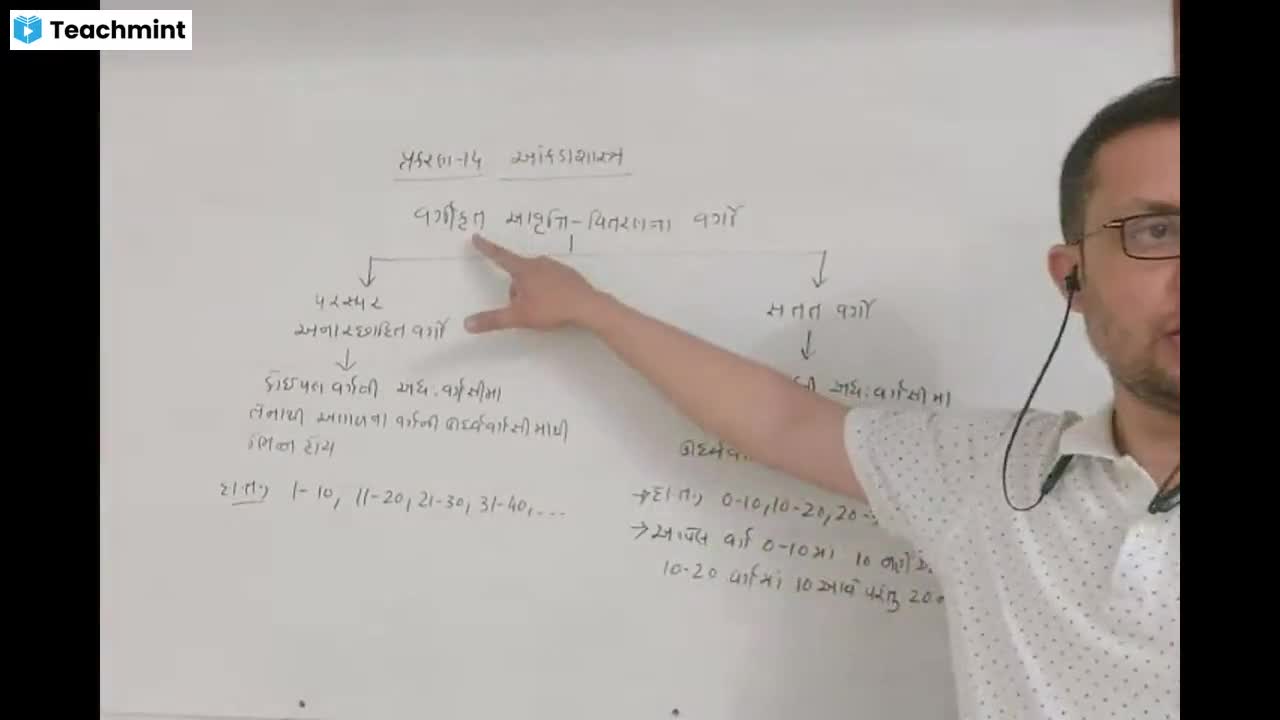 Teachmint
પ્રકરણ-14 આંકડાશાસ્ત્ર
વર્ગીકૃત આવૃત્તિ-વિતરણના વર્ગો
પરસ્પર
અનાચ્છાદિત વર્ગો
કોઈપણ વર્ગની અધઃવર્ગસીમા
તેનાથી આગળના વર્ગની ઊર્ધ્વવર્ગસીમાથી
ભિન્ન હોય
દા.ત., 1-10, 11-20, 21-30, 31-40, ...
સતત વર્ગો
અધઃવર્ગસીમા
→ દા.ત., 0-10, 10-20, 20-
→ આપેલ વર્ગ 0-10માં 10 નહીં
10-20 વર્ગમાં 10 આવે પરંતુ 20